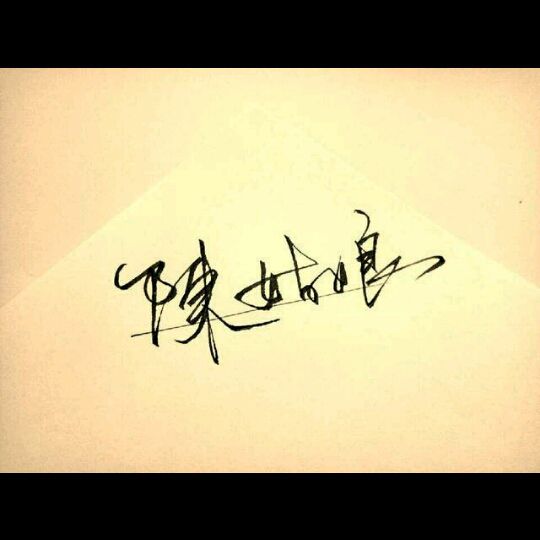 陳姑娘